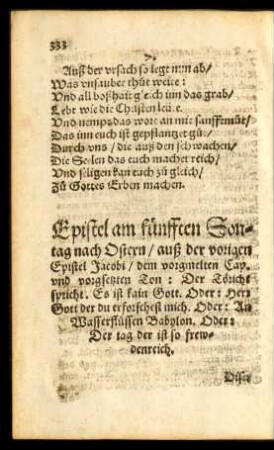 333
7.
Auß der vrsach so legt nun ab/
Was vnsauber thüt weite:
Vnd all boßhait gleich inn das grab/
Lebt wie die Christen leüte.
Vnd nempt das wort an mit sanfftmüt/
Das inn euch ist gepflantzet güt/
Durch vns/ die auß den schwachen/
Die Seelen das euch machet reich/
Vnd seligen kan euch zü gleich/
Zü Gottes Erben machen.
Epistel am fünfften Son-
tag nach Ostern/ auß der vorigen
Epistel Jacobi/ dem vorgmelten Cap.
vnd vorgsetzten Ton: Der Töricht
spricht. Es ist kain Gott. Oder: Herr
Gott der du erforschest mich. Oder: An
Wasserflüssen Babylon. Oder:
Der tag der ist so frew-
denreich.